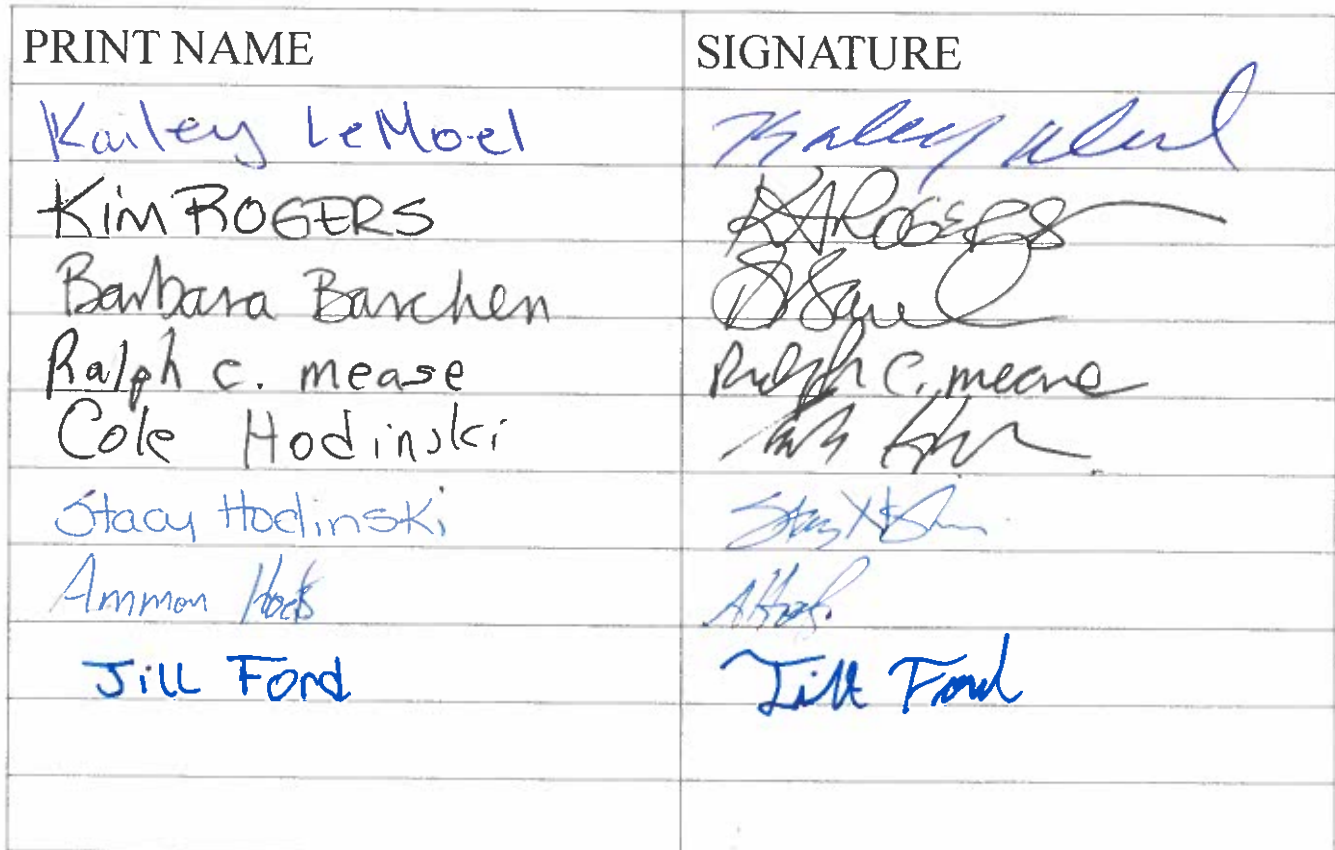 PRINT NAME SIGNATURE
Kailey LeMoel
Kim ROGERS KA ROGERS
Barbara Barchen
Ralph c. mease Ralph C. mease
Cole Hodinski
Stacy Hodinski Stacy
Ammon
Jill Ford Jill Ford